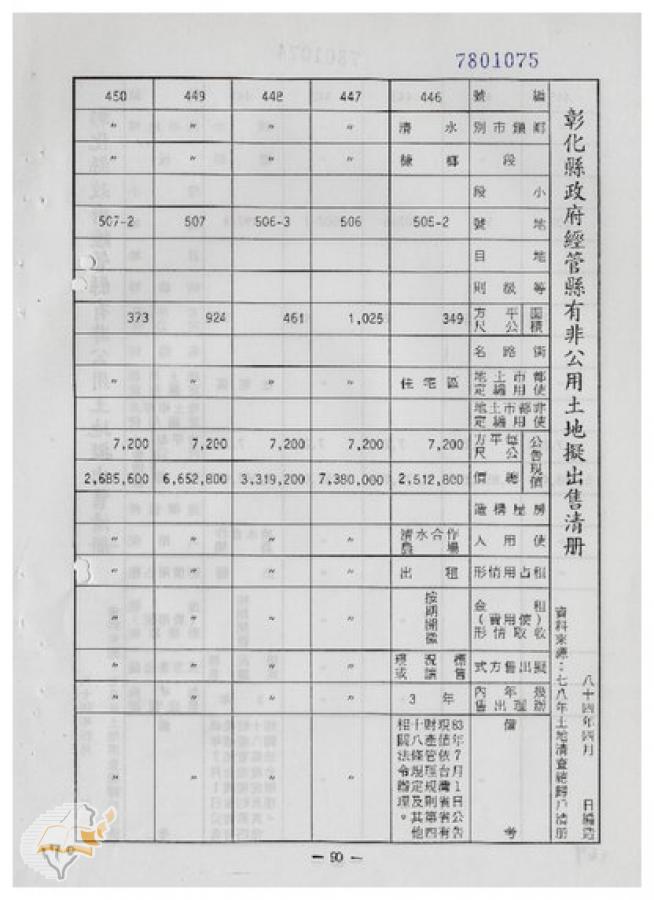 7801075
彰化縣政府經管縣有非公用土地擬出售清册
資料來源：七八年土地清查總歸戶清册
八十四年四月　日編造
編號 446 447 448 449 450
鄉鎮市別 清水 〃 〃 〃 〃
段 槺榔 〃 〃 〃 〃
小段
地號 505-2 506 506-3 507 507-2
地目
等級則
面積 平方公尺 349 1,025 461 924 373
街路名
都市土地使用編定 住宅區 〃 〃 〃 〃
非都市土地使用編定
公告現值 每平方公尺 7,200 7,200 7,200 7,200 7,200
總價 2,512,800 7,380,000 3,319,200 6,652,800 2,685,600
房屋構造
使用人 清水合作農場 〃 〃 〃 〃
租占用情形 出租 〃 〃 〃 〃
租金(使用費)收取情形 按期開徵
擬出售方式 現況標售或讓售 〃 〃 〃 〃
幾年內辦理出售 3年 〃 〃 〃 〃
備考 83年7月1日公告現值依台灣省省有財產管理規則第四十八條規定及其他相關法令辦理。 〃 〃 〃 〃
— 90 —